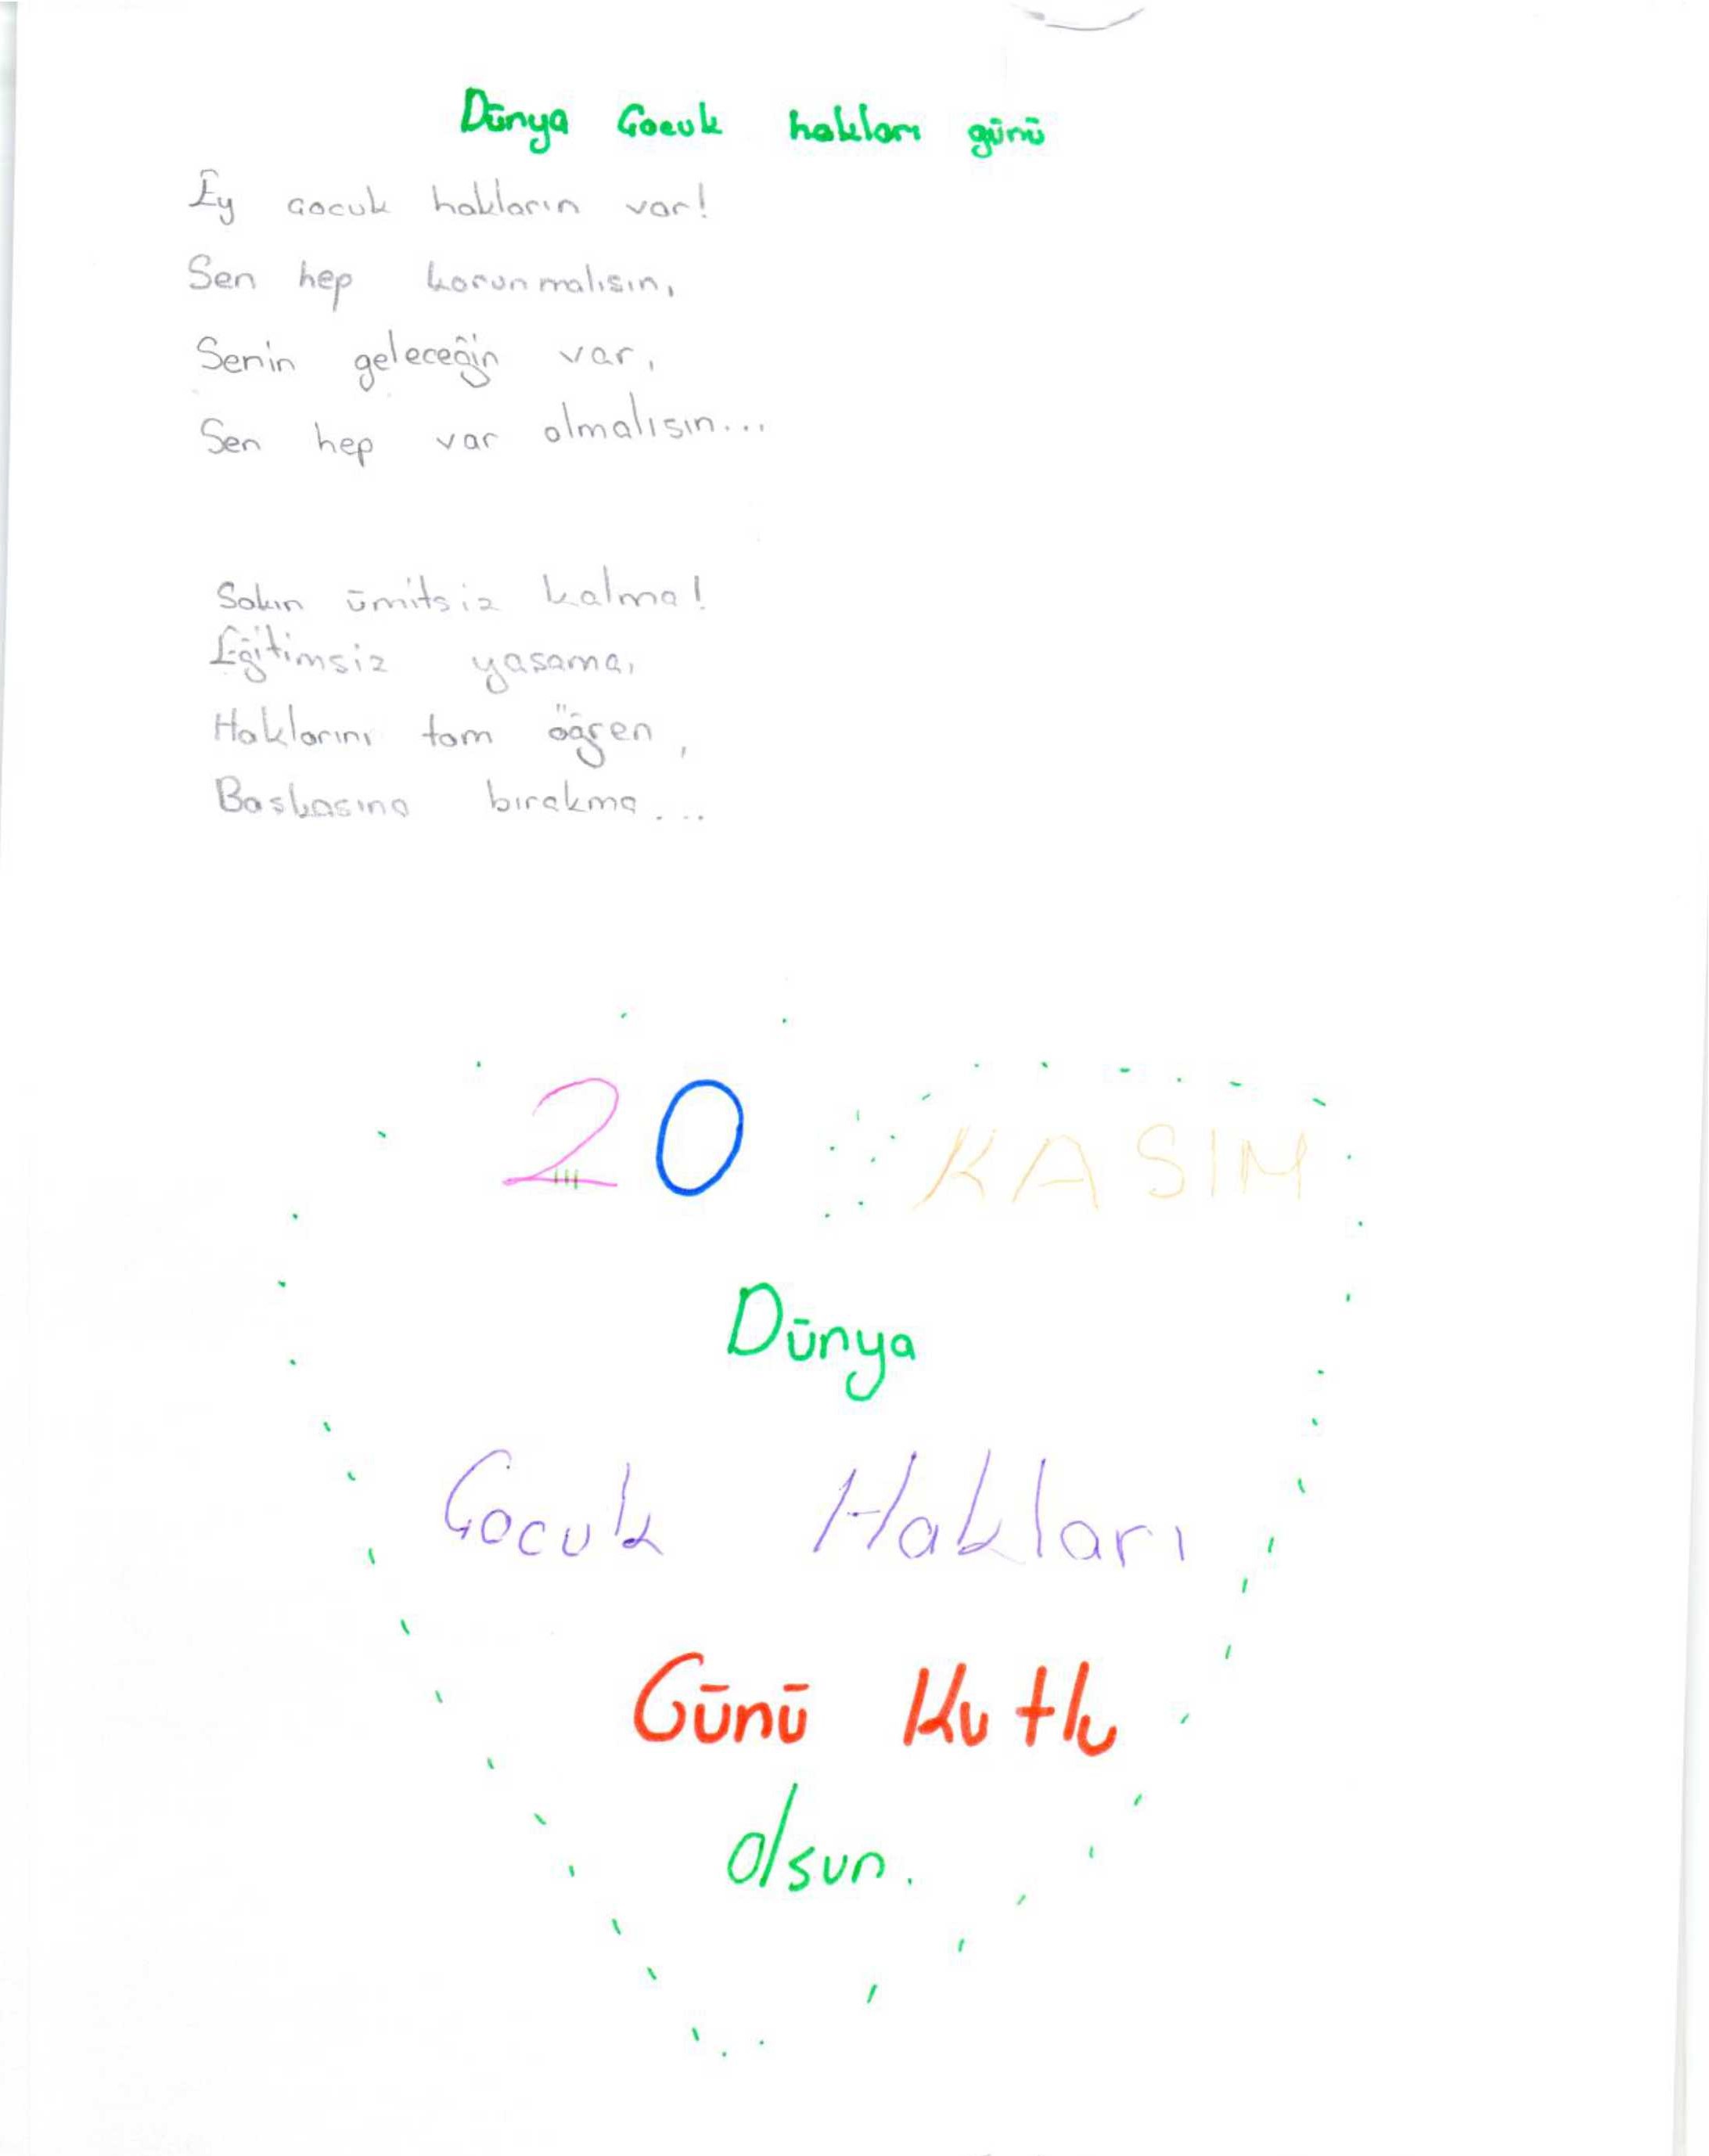 Dünya Çocuk hakları günü
Ey çocuk hakların var!
Sen hep korunmalısın,
Senin geleceğin var,
Sen hep var olmalısın...
Sakın ümitsiz kalma!
Eğitimsiz yaşama,
Haklarını tam öğren,
Baskasına bırakma...
20 KASIM
Dünya
Çocuk Hakları
Günü Kutlu
olsun.